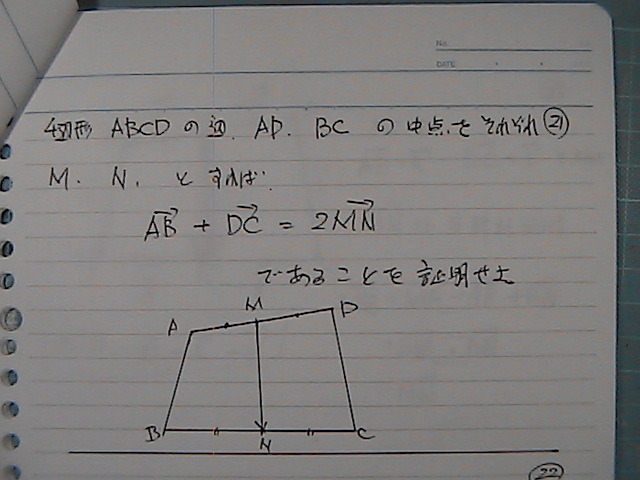 No.
DATE
4辺形 ABCD の辺. AD. BC の中点をそれぞれ ㉑
M. N. とすれば.
AB→ + DC→ = 2MN→
であることを証明せよ
M D
A
B N C
㉒